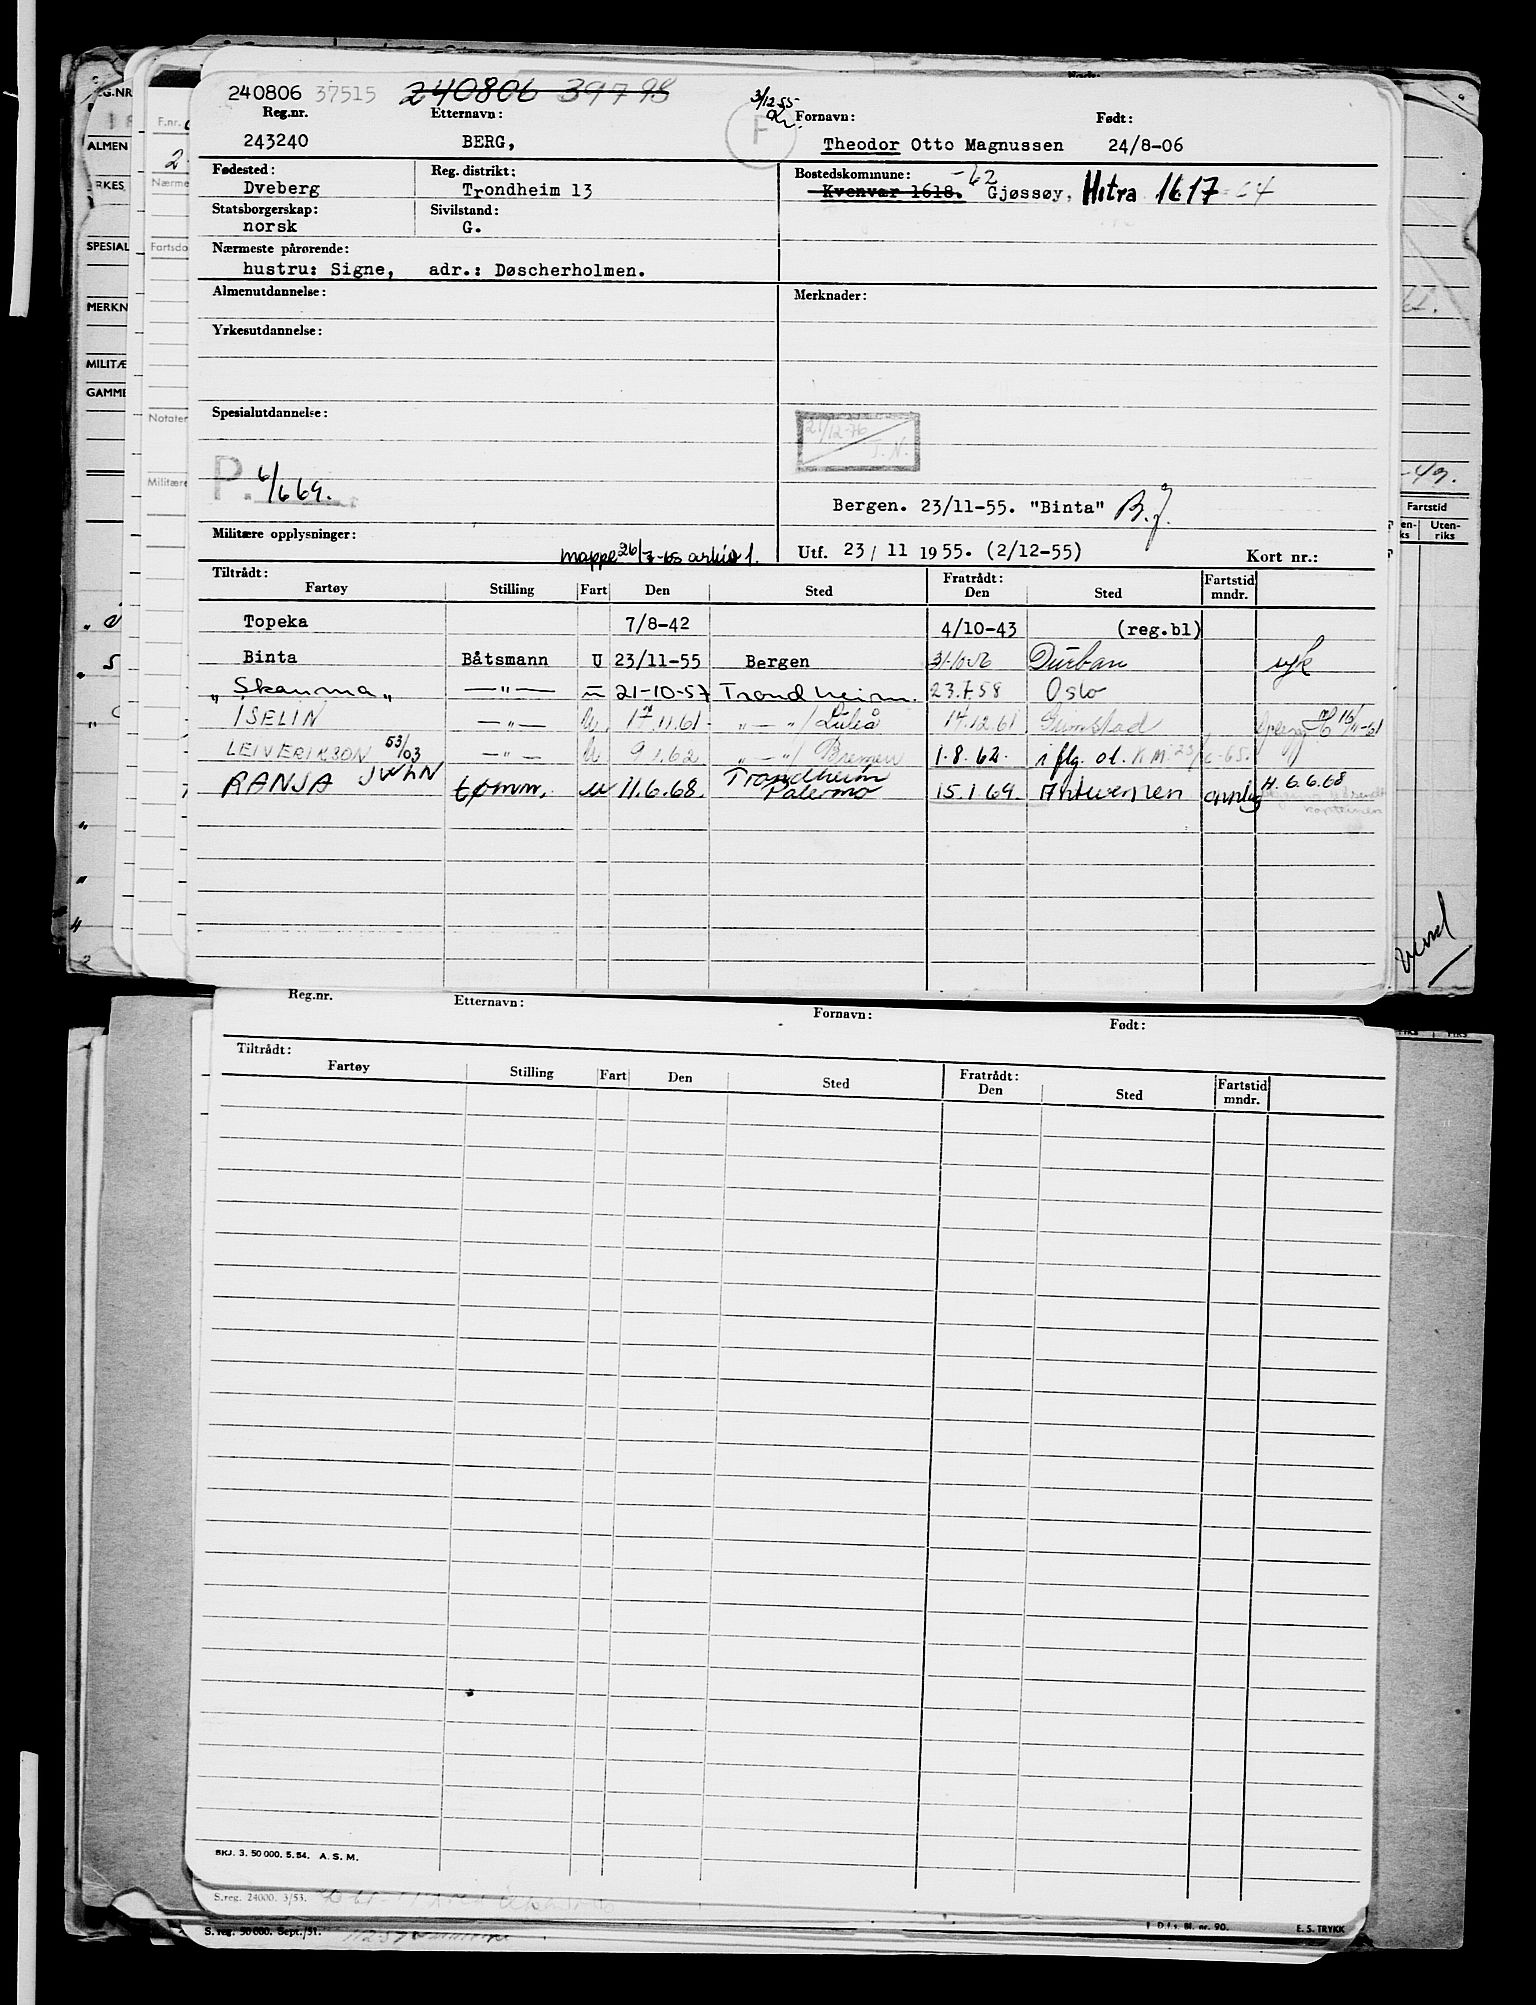 240806 37515 240806 39798
3/12 55
Reg.nr. Etternavn: F Fornavn: Født:
243240 BERG, Theodor Otto Magnussen 24/8-06
Fødested: Reg. distrikt: Bostedskommune: -62
Dveberg Trondheim 13 Kvenvær 1618. Gjøssøy, Hitra 1617 -64
Statsborgerskap: Sivilstand:
norsk G.
Nærmeste pårørende:
hustru: Signe, adr.: Døscherholmen.
Almenutdannelse: Merknader:
Yrkesutdannelse:
Spesialutdannelse:
21/12-76
J.N.
P. 6/6 69.
Bergen. 23/11-55. "Binta" B.J.
Militære opplysninger:
mappe 26/7-65 arkiv 1. Utf. 23/11 1955. (2/12-55) Kort nr.:
Tiltrådt: Fratrådt: Fartstid
Fartøy Stilling Fart Den Sted Den Sted mndr.
Topeka 7/8-42 4/10-43 (reg.bl)
Binta Båtsmann U 23/11-55 Bergen 31-10-56 Durban syk
„ Skauma „ —"— 21-10-57 Trondheim. 23.7.58 Oslo
ISELIN —"— U. 17.11.61 „—"/Luleå 14.12.61 Grimstad
LEIV ERIKSON 53/03 —"— U 9.1.62 „—"/Bremen 1.8.62. iflg. ol. K.M. 23/6-65.
RANJA JWLN tømm. u 11.6.68. Trondheim Palermo 15.1.69. Antwerpen opplag H. 6.6.68
Reg.nr. Etternavn: Fornavn: Født:
Tiltrådt: Fratrådt: Fartstid
Fartøy Stilling Fart Den Sted Den Sted mndr.
BKJ. 3. 50 000. 5. 54. A. S. M.
S.reg. 24000. 3/53.
S. reg. 50 000. Sept./51. D.f.s. Bl. nr. 90. E. S. TRYKK